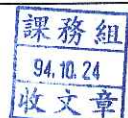 課務組
94.10.24
收文章